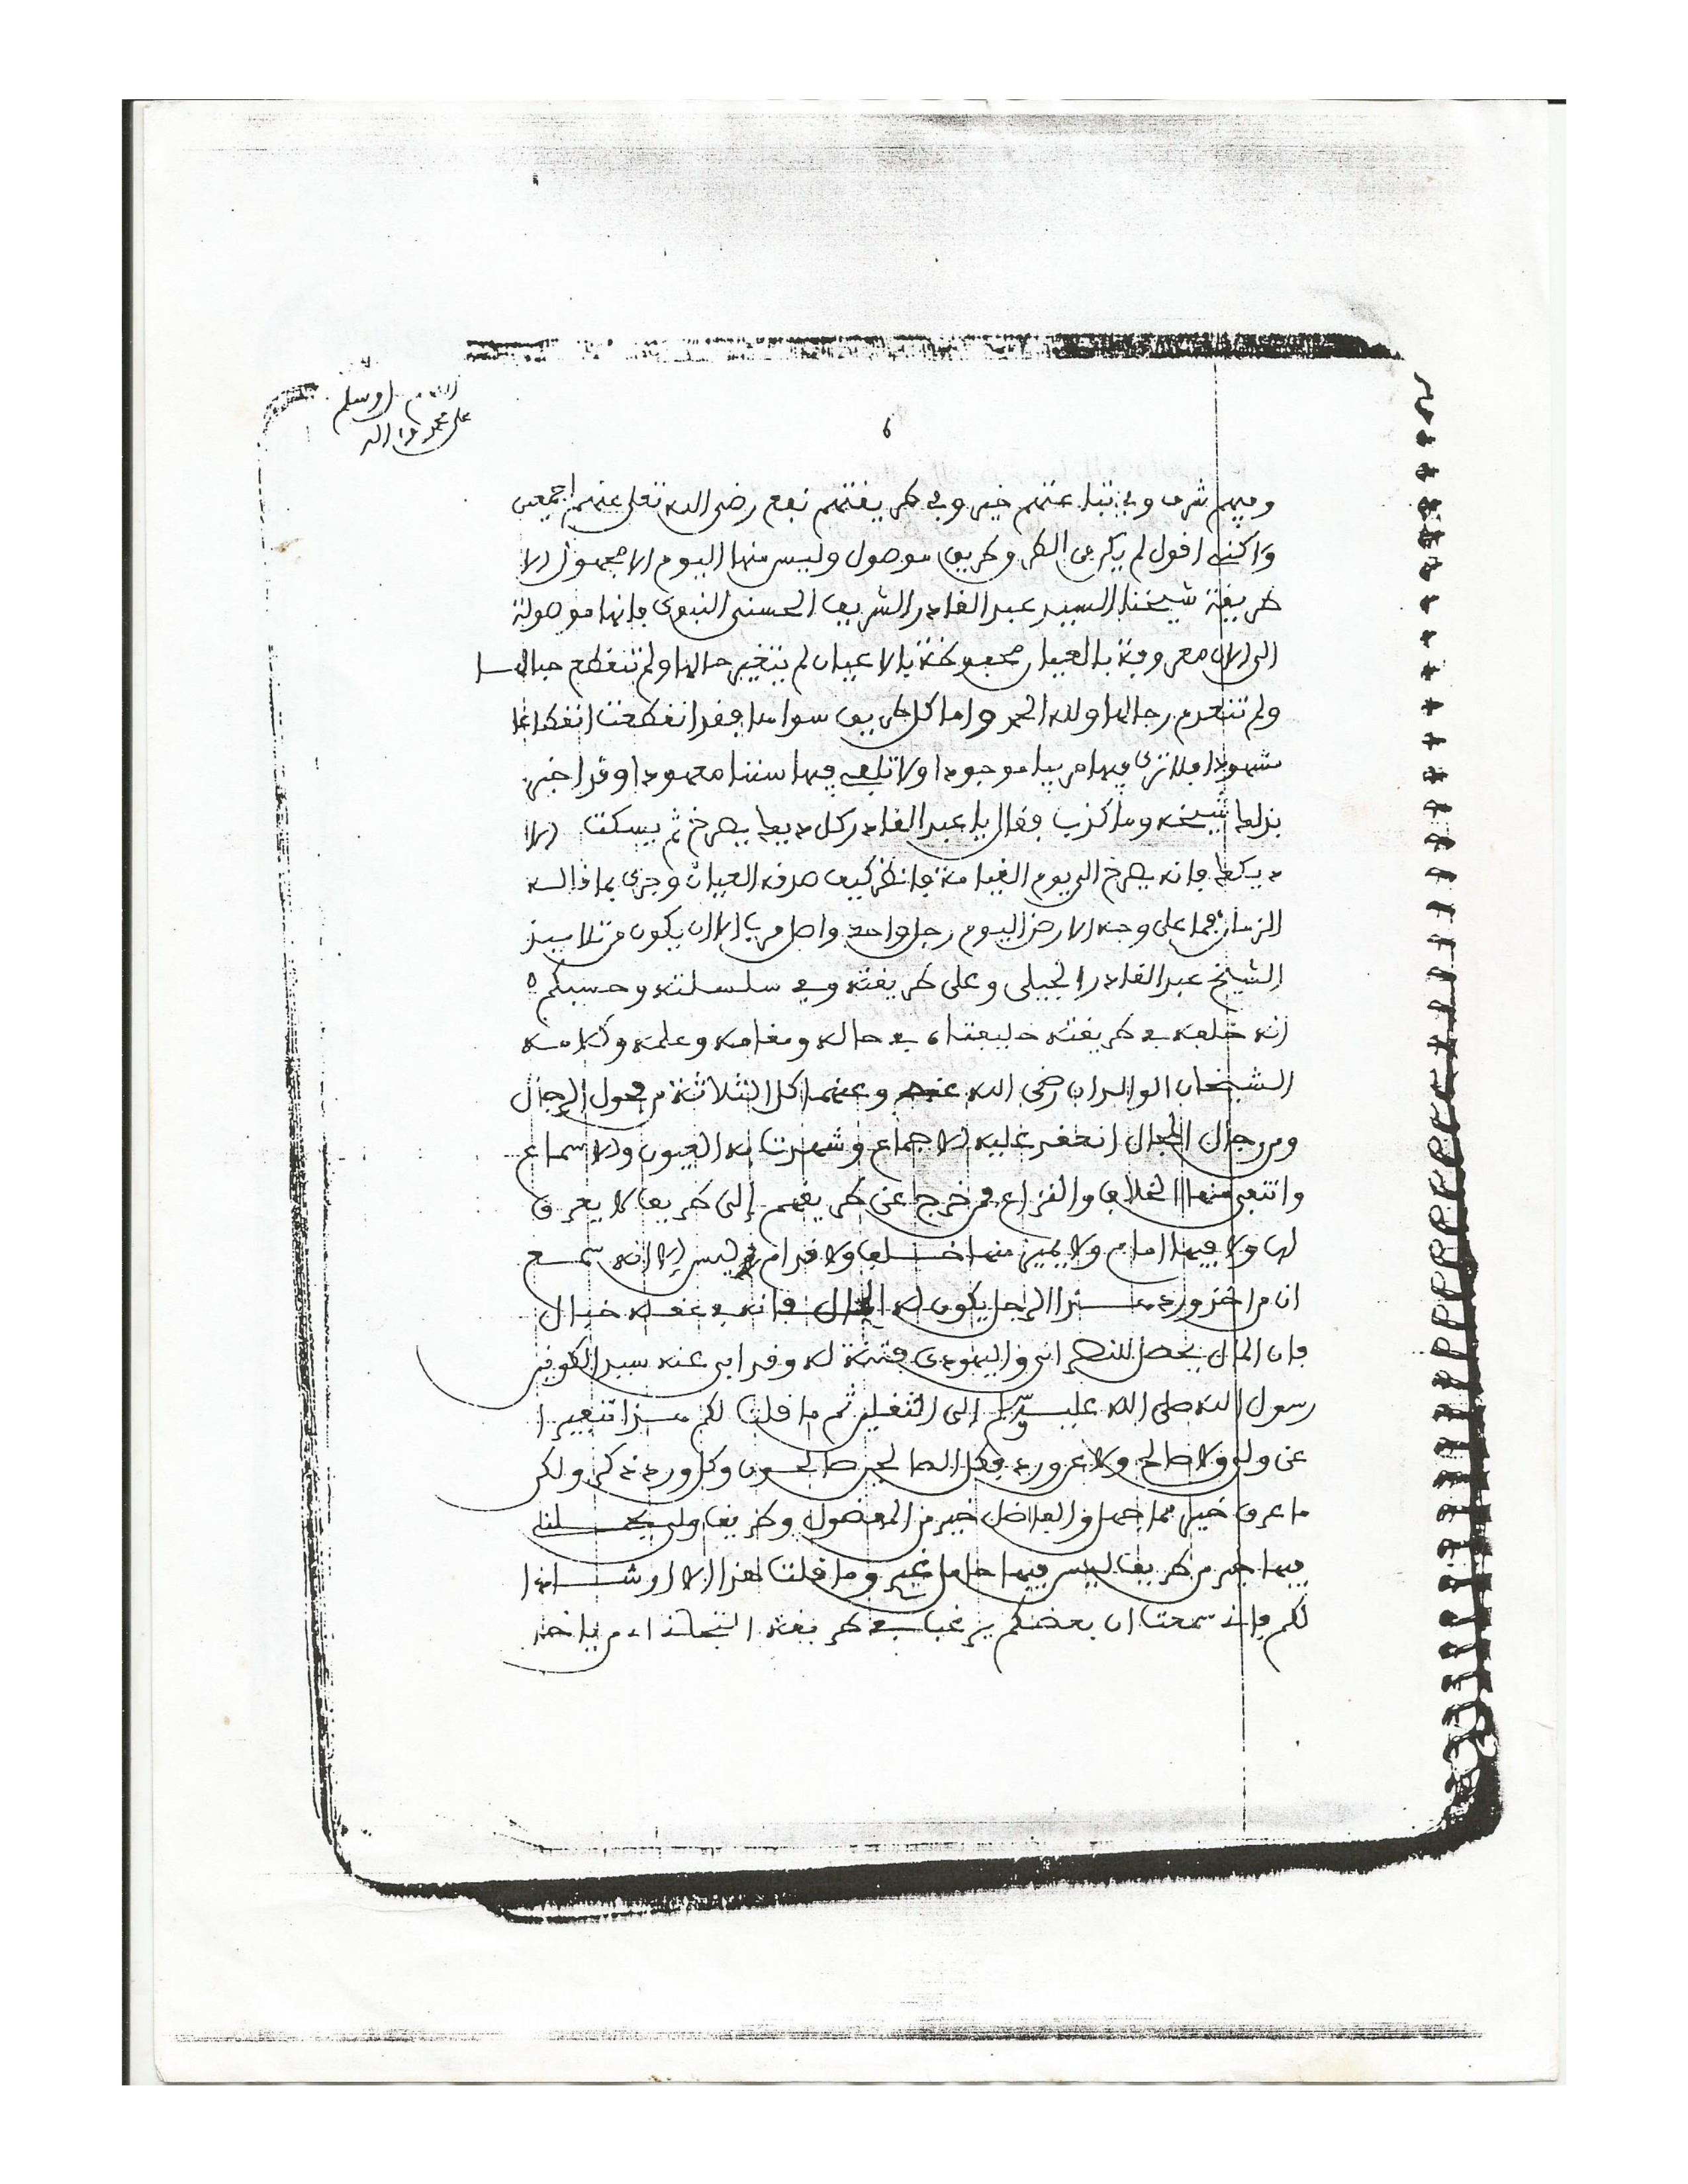 وسلم
على محمد واله
6
وفيهم شرف وفي تباعتهم خير وفي طريقتهم نفع رضي الله تعلى عنهم اجمعين
ولكني اقول لم يكن في الطرق طريق موصول وليس منها اليوم الا مجهول الا
طريقة شيخنا السيد عبد القادر الشريف الحسني النبوي فانها موصولة
الى الان معروفة بالعيان محفوظة بالاعيان لم يتغير حالها ولم تنقطع حبالها
ولم تنعدم رجالها ولله الحمد واما كل طريق سواها فقد انقطعت انقطاعا
مشهودا فلا ترى فيها مربيا موجودا ولا تلفي فيها سننا معهودا وقد اخبره
بذلك شيخه وما كذب فقال يا عبد القادر كل ديك يصرخ ثم يسكت الا
ديكك فانه يصرخ الى يوم القيامة فانظر كيف صدقه العيان وجرى بما قاله
الزمان فما على وجه الارض اليوم رجل واحد واصل مرب الا ان يكون من تلاميذ
الشيخ عبد القادر الجيلي وعلى طريقته وفي سلسلته وحسبكم
انه خلفه في طريقته خليفتاه في حاله ومقامه وعلمه وكلامه
الشيخان الوالدان رضي الله عنه وعنهما كل الثلاثة من فحول الرجال
ومن رجال المجال انعقد عليه الاجماع وشهدت له العيون والاسماع
وانتفى منها الخلاف والنزاع فمن خرج عن طريقهم إلى طريق لا يعرف
لها ولا فيها امام ولا يميز منها خلف ولا قدام فليس الا انه سمع
ان من اخذ ورد هذا الرجل يكون له المال فانه في عقله خبال
فان المال يحصل للنصراني واليهودي فتنة له وقد ابى عنه سيد الكونين
رسول الله صلى الله عليه وسلم إلى التقليل ثم ما قلت لكم هذا تنفيرا
عن ولي ولا صالح ولا عن ورد فكل الصالحين صالحون وكل ورد ذكر ولكن
ما عرف خير مما جهل والفاضل خير من المفضول وطريق ولي
فيها خير من طريق ليس فيها حامل غير وما قلت هذا الا ارشادا
لكم فاني سمعت ان بعضكم يرغب في طريقة التجاني ا من ياخذ